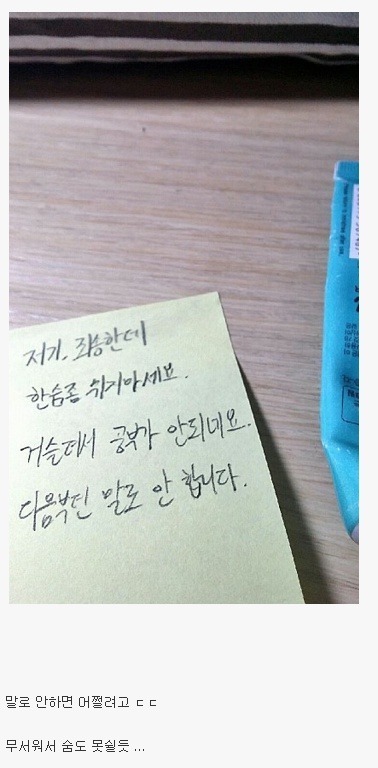 저기. 죄송한데
한숨좀 쉬지마세요.
거슬려서 공부가 안되네요.
다음부턴 말로 안 합니다.
말로 안하면 어쩔려고 ㄷㄷ
무서워서 숨도 못쉴듯 ...